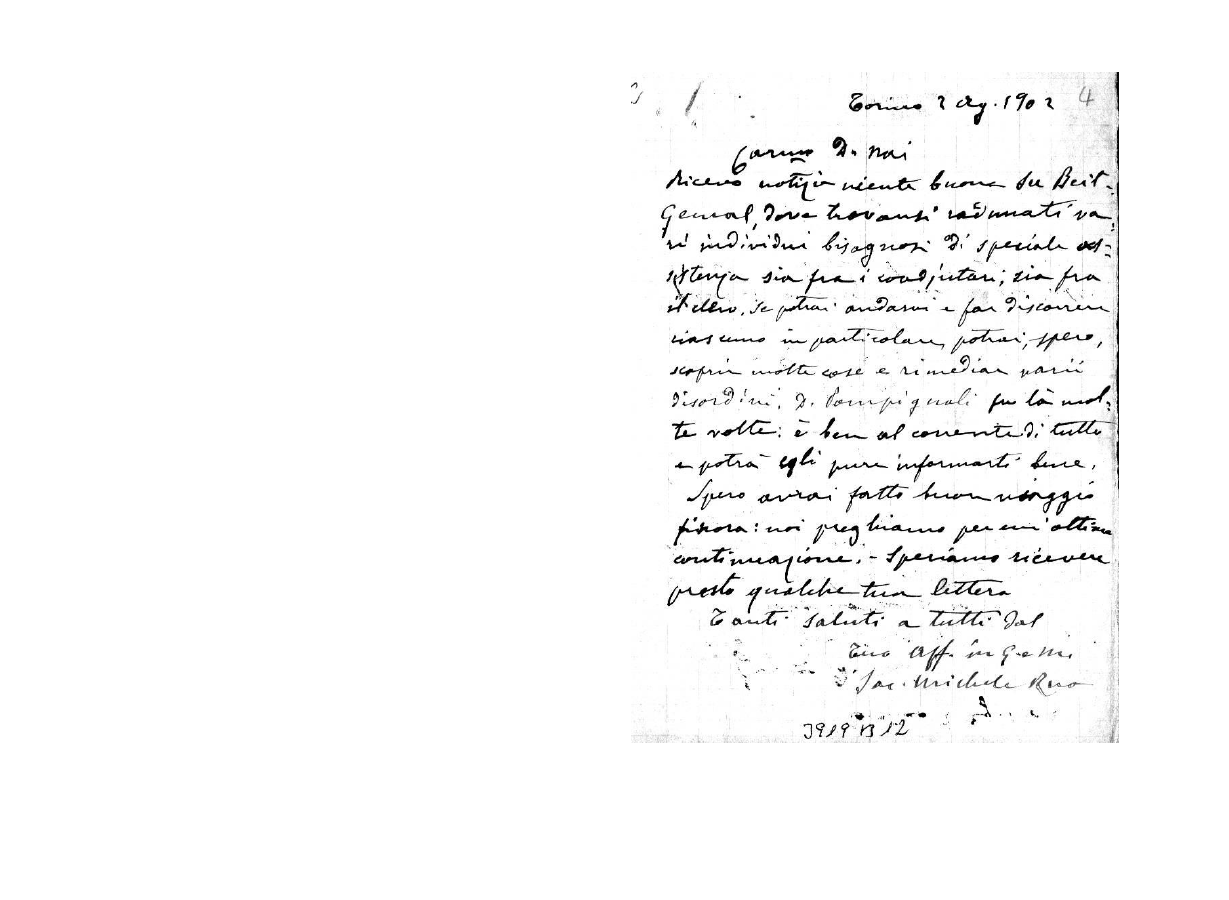 4
Torino 2 Ag. 1902
Carmo D. Nai
Ricevo notizie niente buone su Beit-
Gemal, dove trovansi radunati va-
ri individui bisognosi di speciale as-
sistenza sia fra i coadjutori, sia fra
il clero. Se potrai andarvi e far discorrere
ciascuno in particolare, potrai, spero,
scoprir molte cose e rimediar varii
disordini. D. Pompignoli fu là mol-
te volte: è ben al corrente di tutto
e potrà egli pure informarti bene.
Spero avrai fatto buon viaggio
finora: noi preghiamo per un'ottima
continuazione. - Speriamo ricevere
presto qualche tua lettera
Tanti saluti a tutti dal
Tuo Aff. in G. e M.
Sac. Michele Rua
3919 B 12